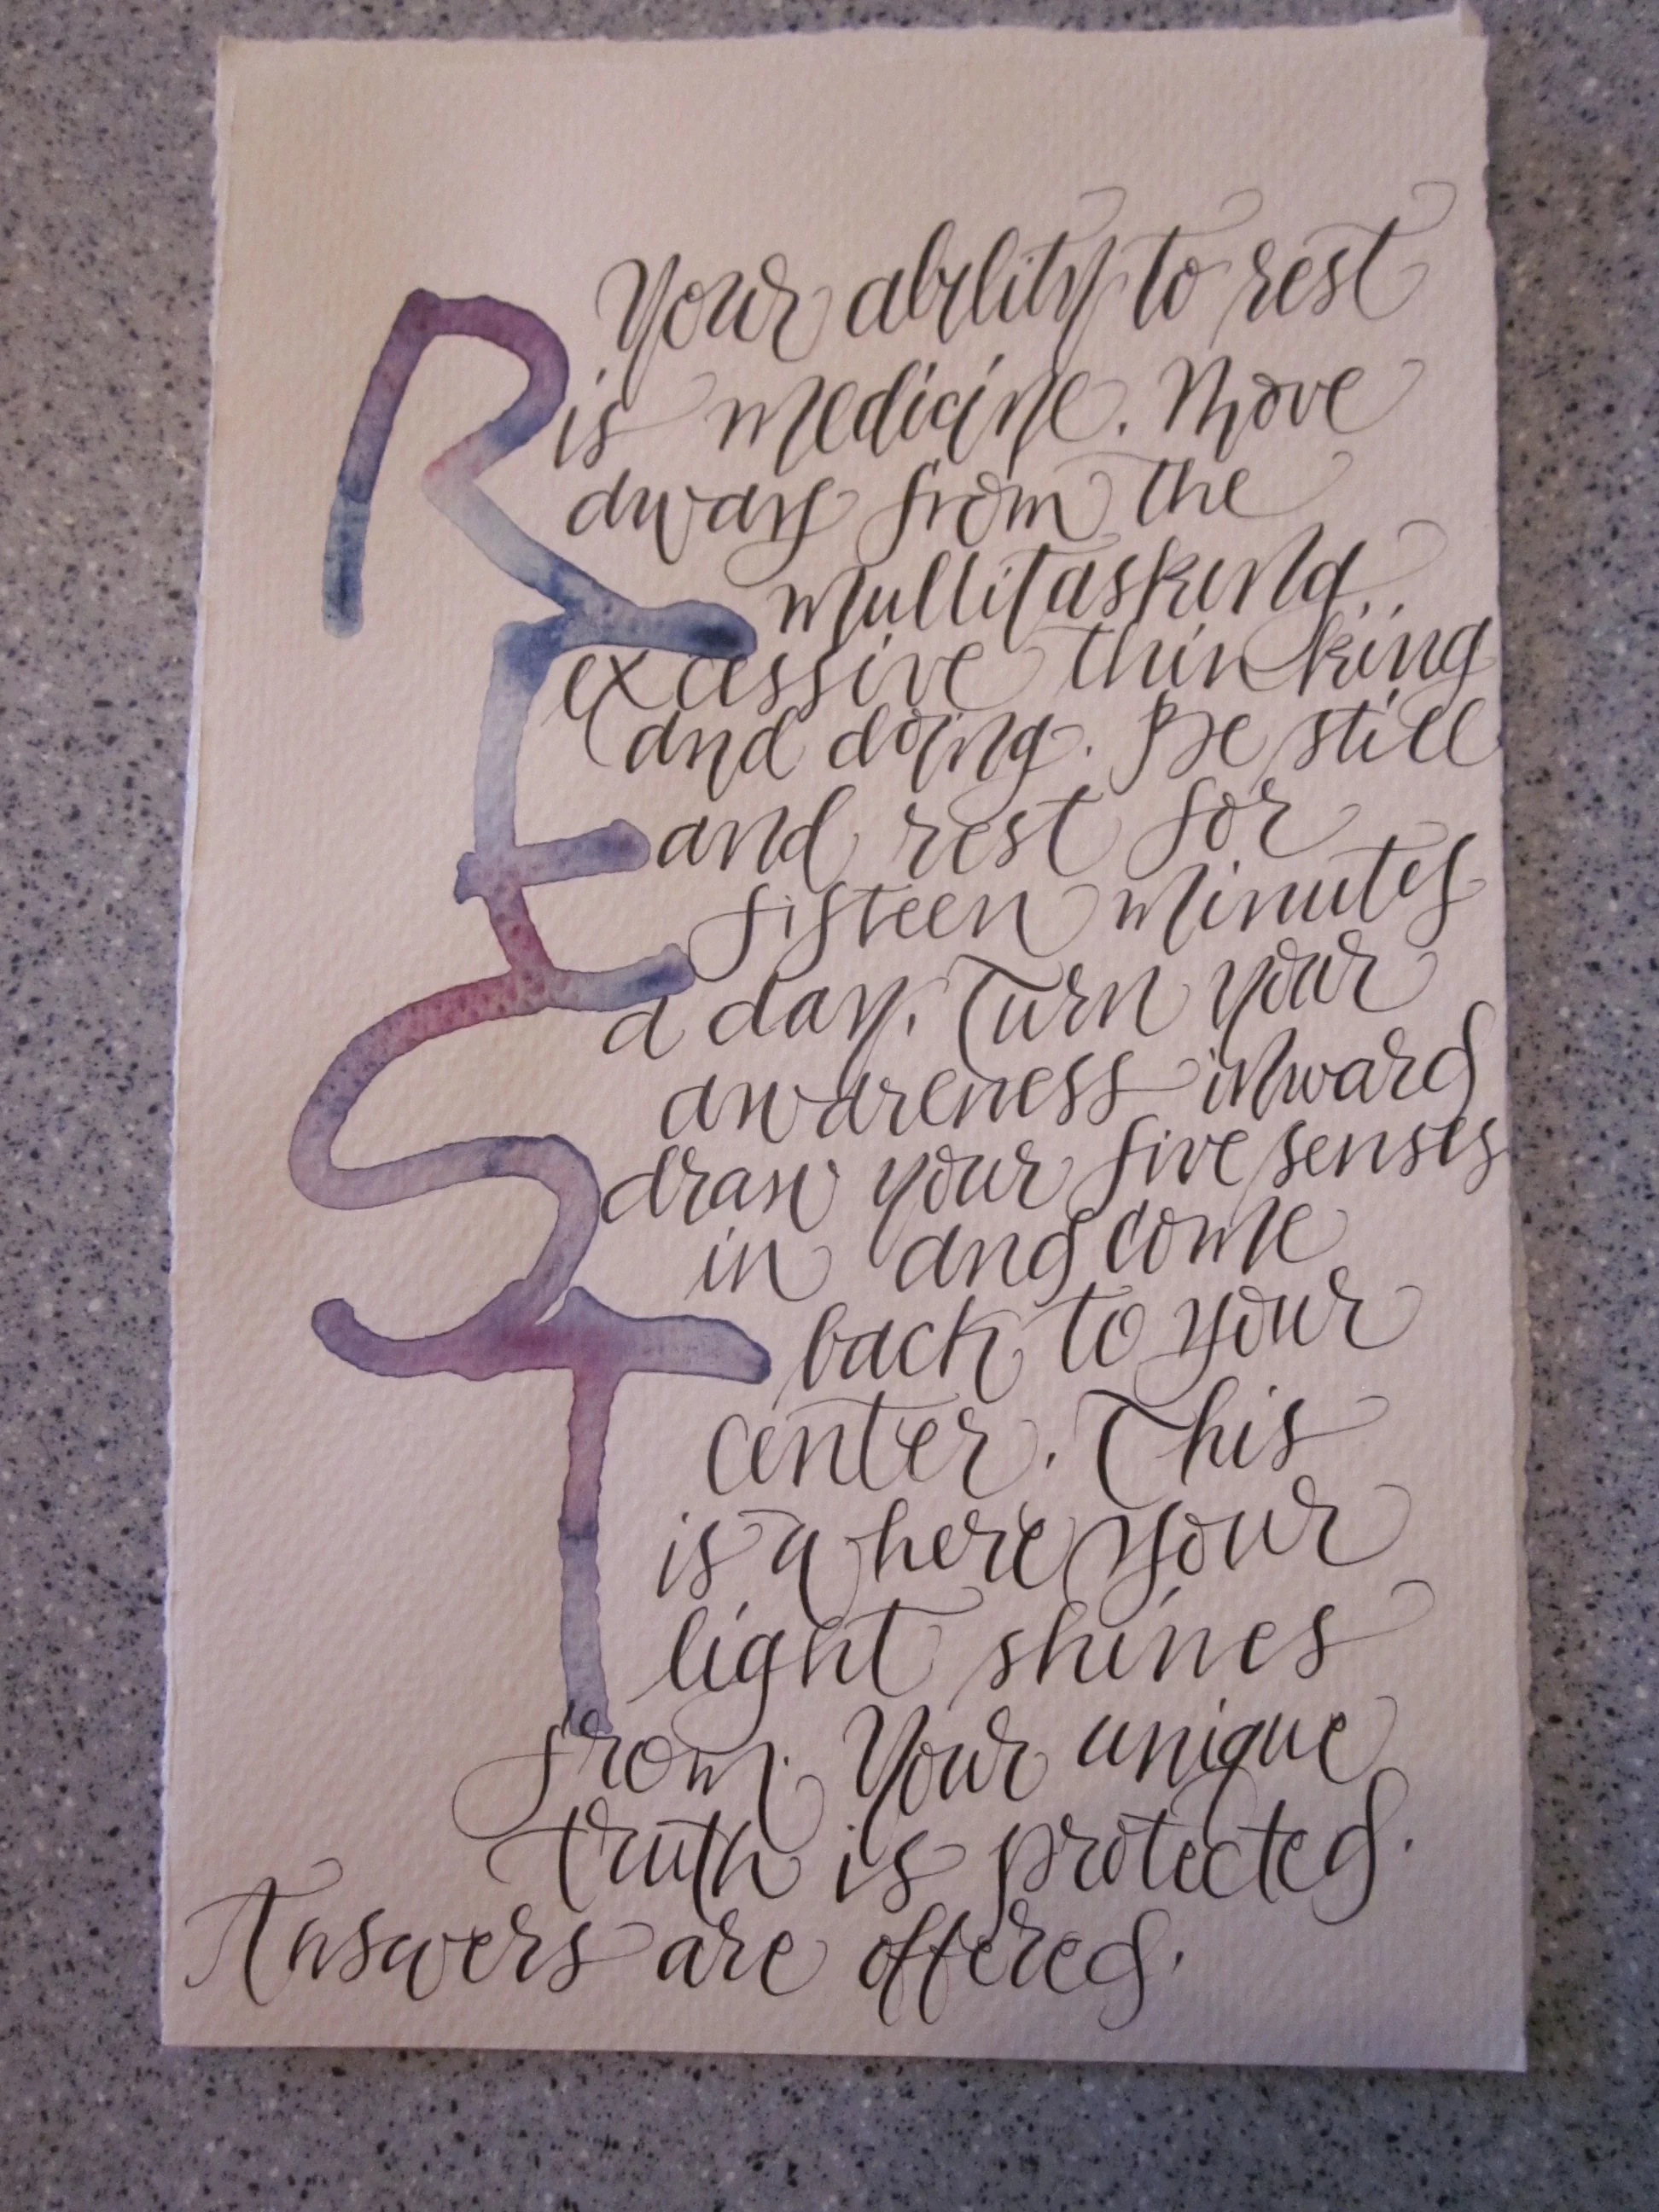 REST
Your ability to rest
is medicine. Move
away from the
multitasking..
excessive thinking
and doing. Be still
and rest for
fifteen minutes
a day. Turn your
awareness inward
draw your five senses
in and come
back to your
center. This
is where your
light shines
from. Your unique
truth is protected.
Answers are offered.